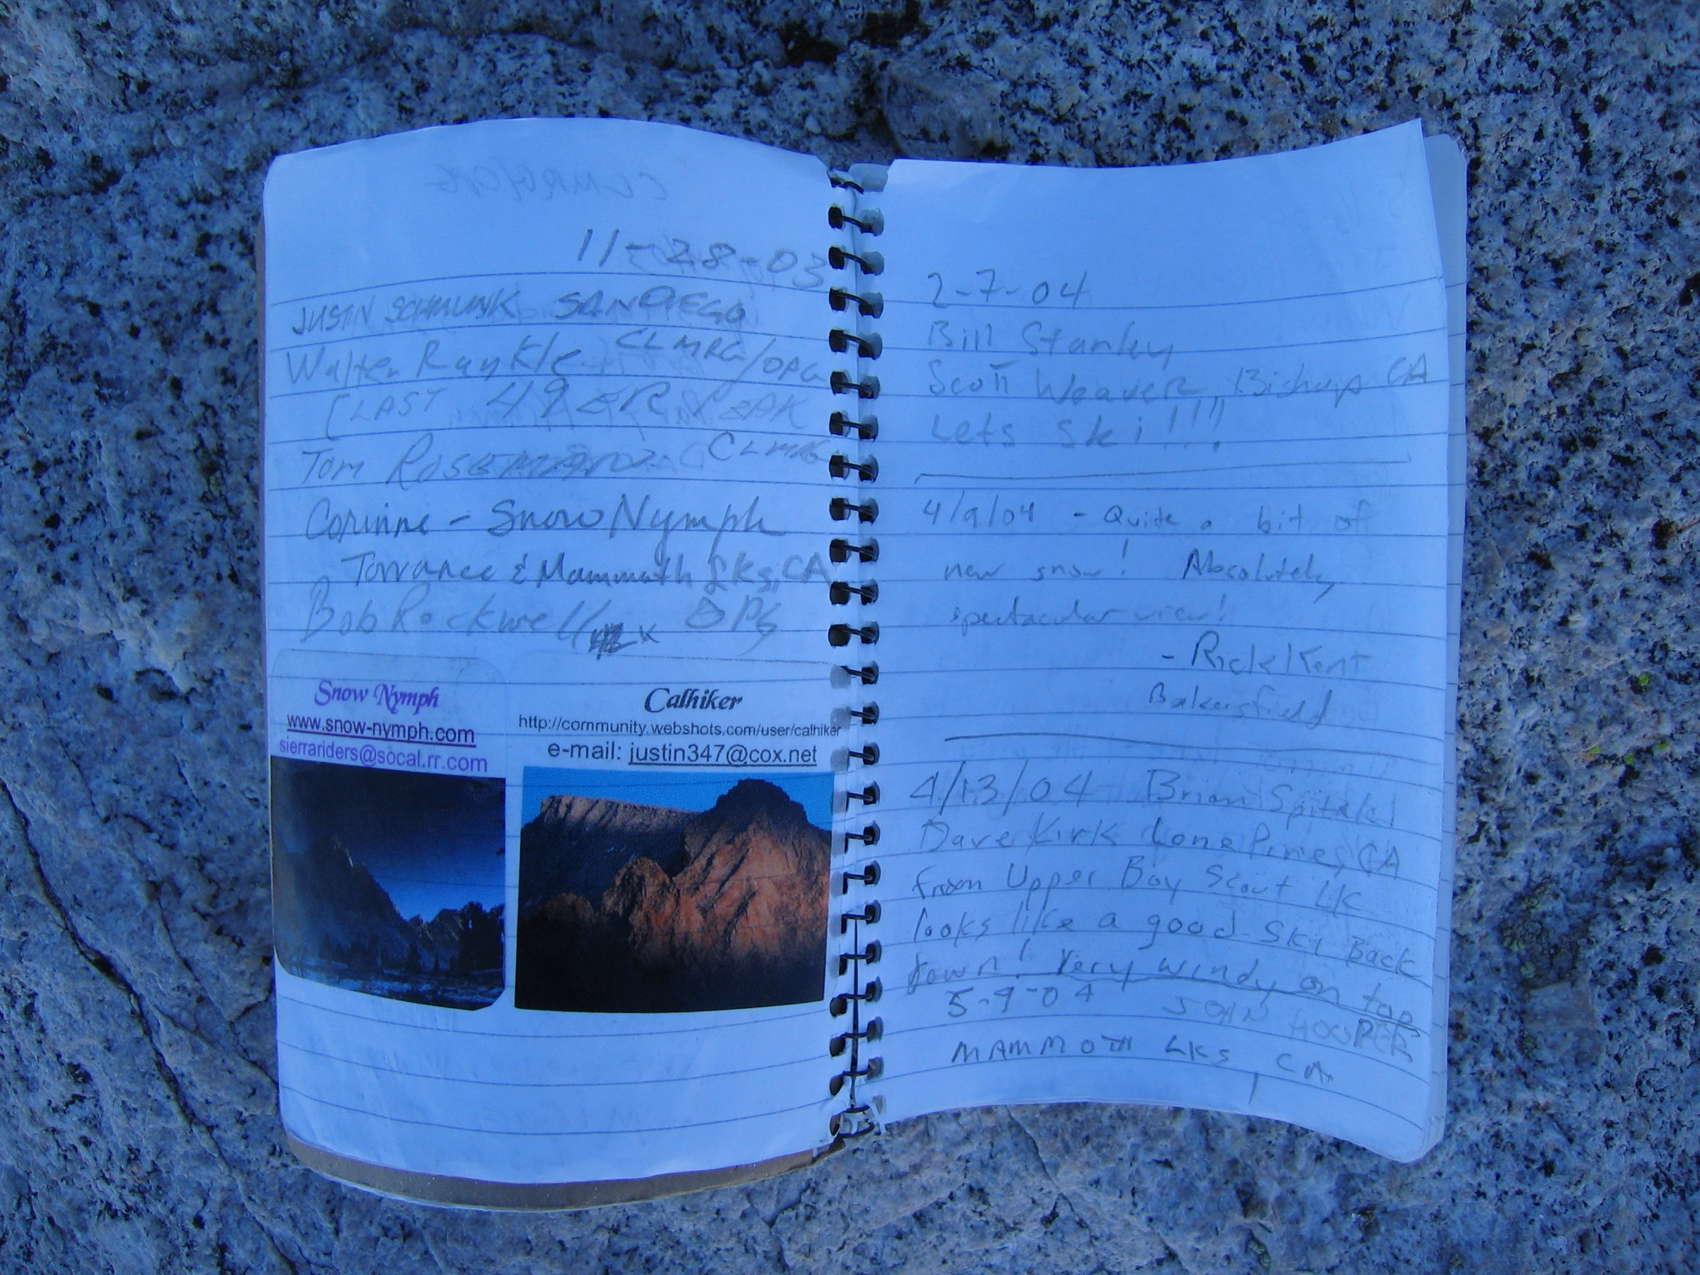 11-28-03
JUSTIN SCHMUNK SAN DIEGO
Walter Runkle CLMRG/OPG
[LAST 49ER PEAK
Tom ROSEMANN CLMRG
Corinne - Snow Nymph
Torrance & Mammoth Lks, CA
Bob Rockwell OPG
Snow Nymph
www.snow-nymph.com
sierrariders@socal.rr.com
Calhiker
http://community.webshots.com/user/calhiker
e-mail: justin347@cox.net
2-7-04
Bill Stanley
Scott Weaver, Bishop CA
Lets Ski!!!!
4/9/04 - Quite a bit of
new snow! Absolutely
spectacular view!
- Rick Kent
Bakersfield
4/13/04 Brian
Dave Kirk Lone Pine, CA
from Upper Boy Scout Lk
looks like a good Ski Back
down! Very windy on top
5-9-04 JOHN HOOPER
MAMMOTH LKS, CA